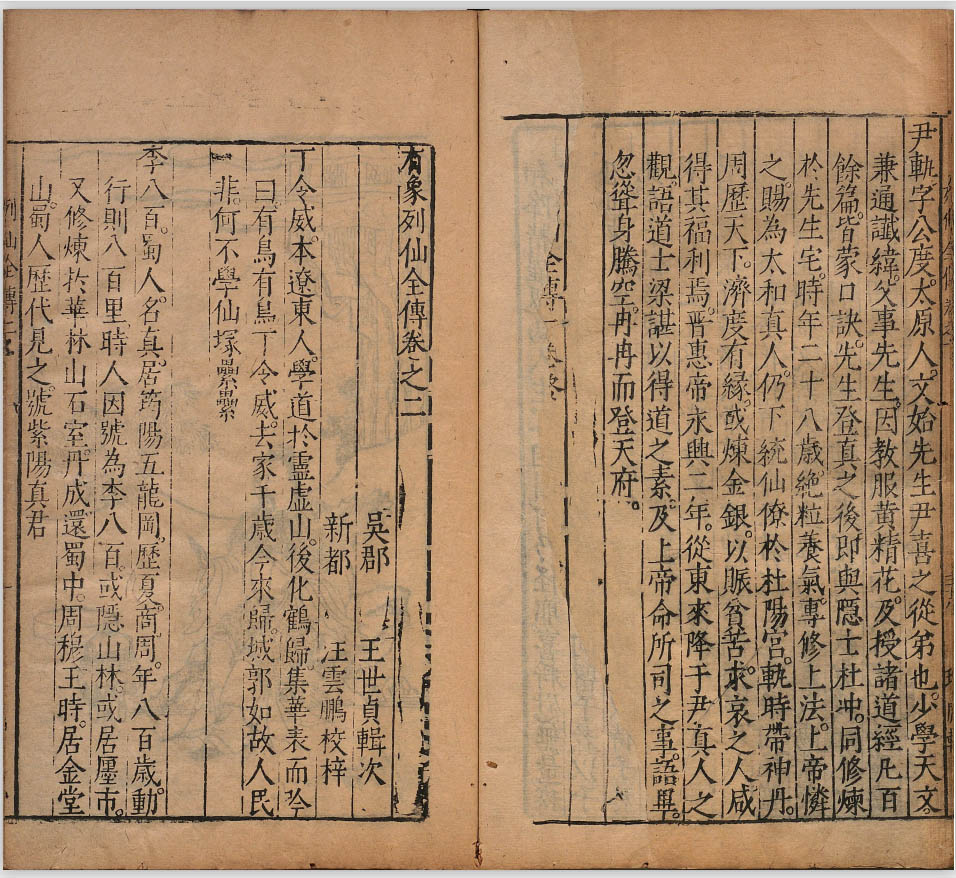 尹軌字公度。太原人。文始先生尹喜之從弟也。少學天文。
兼通讖緯。父事先生。因教服黃精花。及授諸道經凡百
餘篇。皆蒙口訣。先生登真之後即與隱士杜冲。同修煉
於先生宅。時年二十八歲絶粒養氣專修上法。上帝憐
之。賜為太和真人。仍下統仙僚於杜陽宮。軌時帶神丹。
周歷天下。濟度有緣。或煉金銀。以賑貧苦。求哀之人咸
得其福利焉。晋惠帝永興二年。從東來降于尹真人之
觀。語道士梁諶以得道之素。及上帝命所司之事。語畢。
忽聳身騰空。冉冉而登天府。
全傳一卷終
有象列仙全傳卷之二
吳郡 王世貞輯次
新都 汪雲鵬校梓
丁令威。本遼東人。學道於靈虛山。後化鶴歸。集華表而吟
曰。有鳥有鳥丁令威。去家千歲今來歸。城郭如故人民
非。何不學仙塚纍纍
李八百。蜀人。名真。居筠陽五龍岡。歷夏。商周。年八百歲。動
行則八百里。時人因號為李八百。或隱山林。或居廛市。
又修煉於華林山石室。丹成還蜀中。周穆王時。居金堂
山。蜀人歷代見之。號紫陽真君
列仙全傳二